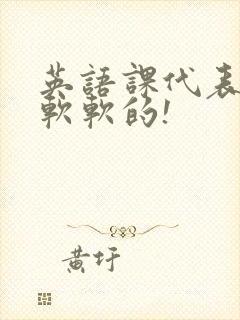 英語課代表
軟軟的!
黃圩